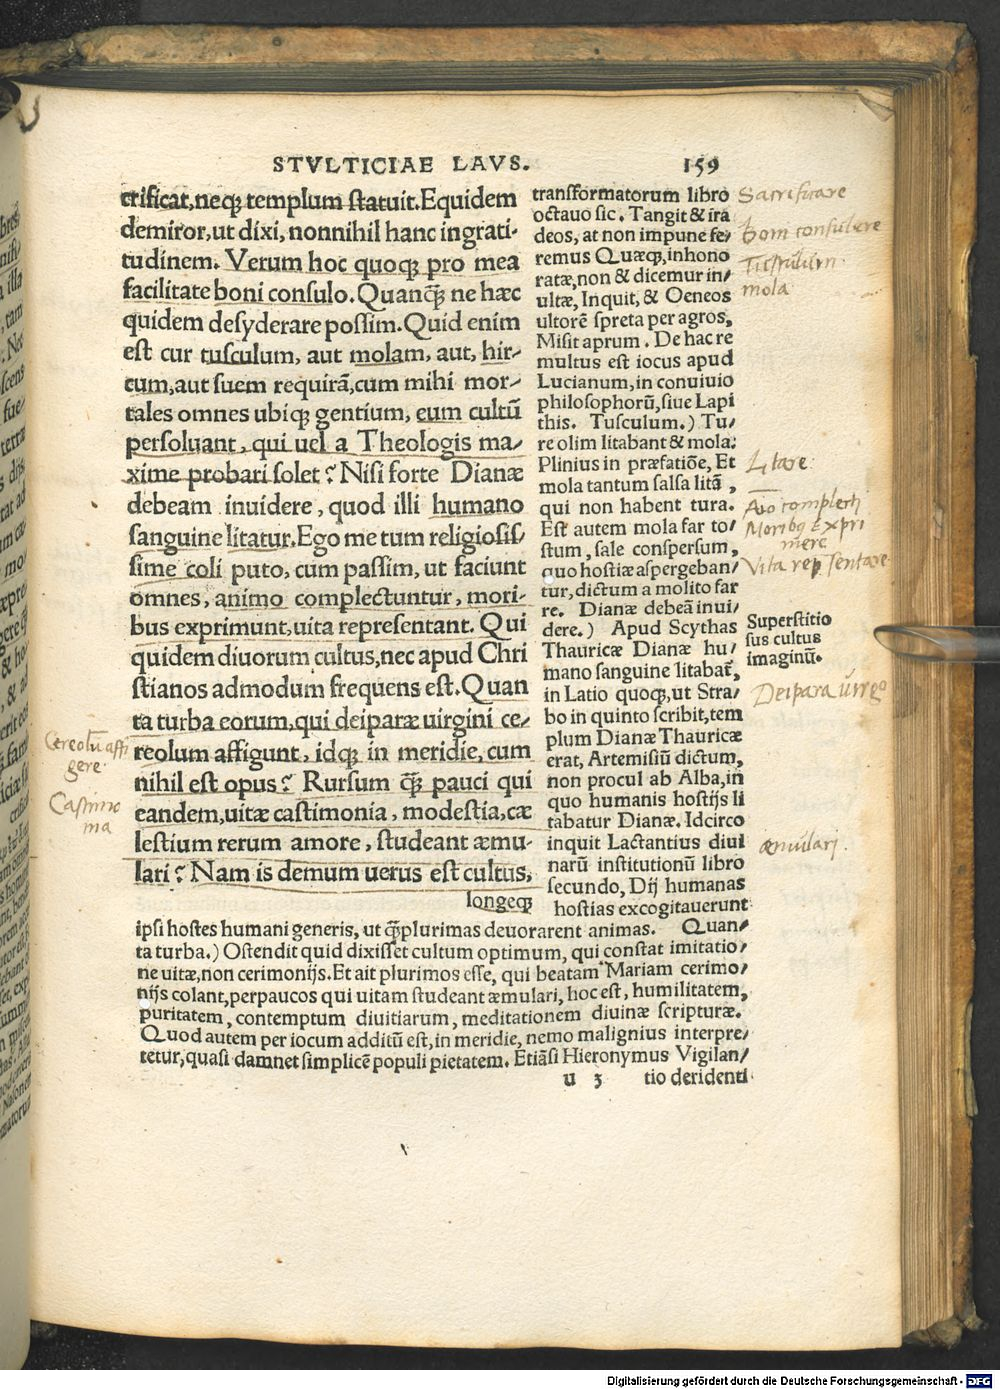 STVLTICIAE LAVS. 159
crificat,neq; templum statuit.Equidem
demiror,ut dixi, nonnihil hanc ingrati-
tudinem. Verum hoc quoq; pro mea
facilitate boni consulo. Quanq̃ ne hæc
quidem desyderare possim.Quid enim
est cur tusculum, aut molam, aut, hir-
cum,aut suem requirã,cum mihi mor-
tales omnes ubiq; gentium, eum cultũ
persoluant, qui uel a Theologis ma-
xime probari solet? Nisi forte Dianæ
debeam inuidere, quod illi humano
sanguine litatur.Ego me tum religiosis-
sime coli puto, cum passim, ut faciunt
omnes, animo complectuntur, mori-
bus exprimunt,uita repræsentant. Qui
quidem diuorum cultus,nec apud Chri
stianos admodum frequens est.Quan
ta turba eorum,qui deiparæ uirgini ce-
reolum affigunt, idq; in meridie, cum
nihil est opus? Rursum q̃ pauci qui
eandem,uitæ castimonia, modestia,cæ
lestium rerum amore, studeant æmu-
lari? Nam is demum uerus est cultus,
longeq;
transformatorum libro
octauo sic. Tangit & irã
deos, at non impune fe-
remus Quæq;,inhono
ratæ,non & dicemur in-
ultæ, Inquit, & Oeneos
ultorẽ spreta per agros,
Misit aprum. De hac re
multus est iocus apud
Lucianum,in conuiuio
philosophorũ,siue Lapi
this. Tusculum.) Tu-
re olim litabant & mola:
Plinius in præfatiõe, Et
mola tantum salsa litã,
qui non habent tura.
Est autem mola far to-
stum, sale conspersum,
quo hostiæ aspergeban-
tur, dictum a molito far
re. Dianæ debeã inui-
dere.) Apud Scythas
Thauricæ Dianæ hu-
mano sanguine litabãt,
in Latio quoq;,ut Stra-
bo in quinto scribit,tem
plum Dianæ Thauricæ
erat, Artemisiũ dictum,
non procul ab Alba,in
quo humanis hostijs li
tabatur Dianæ. Idcirco
inquit Lactantius diui
narũ institutionũ libro
secundo, Dij humanas
hostias excogitauerunt
ipsi hostes humani generis, ut q̃plurimas deuorarent animas. Quan-
ta turba.) Ostendit quid dixisset cultum optimum, qui constat imitatio-
ne uitæ,non cerimonijs.Et ait plurimos esse, qui beatam Mariam cerimo-
nijs colant,perpaucos qui uitam studeant æmulari, hoc est, humilitatem,
puritatem, contemptum diuitiarum, meditationem diuinæ scripturæ.
Quod autem per iocum additũ est,in meridie, nemo malignius interpre-
tetur,quasi damnet simplicẽ populi pietatem. Etiãsi Hieronymus Vigilan-
u 3 tio deridenti
Sacrificare
boni consulere
mola
Litare
Aīo complecti
Moribq Expri
mere
Vita repsentare
Superstitio
sus cultus
imaginũ.
Deipara virgo
æmulari.
Cereolũ affi
gere.
Castimo
nia
Digitalisierung gefördert durch die Deutsche Forschungsgemeinschaft - DFG